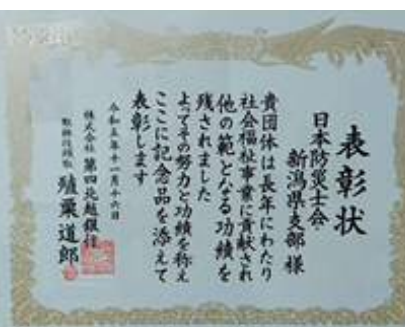 表彰状
日本防災士会
新潟県支部 様
貴団体は長年にわたり
社会福祉事業に貢献され
他の範となる功績を
残されました
よってその努力と功績を称え
ここに記念品を添えて
表彰します
令和五年十一月十六日
株式会社 第四北越銀行
取締役頭取 殖栗道郎